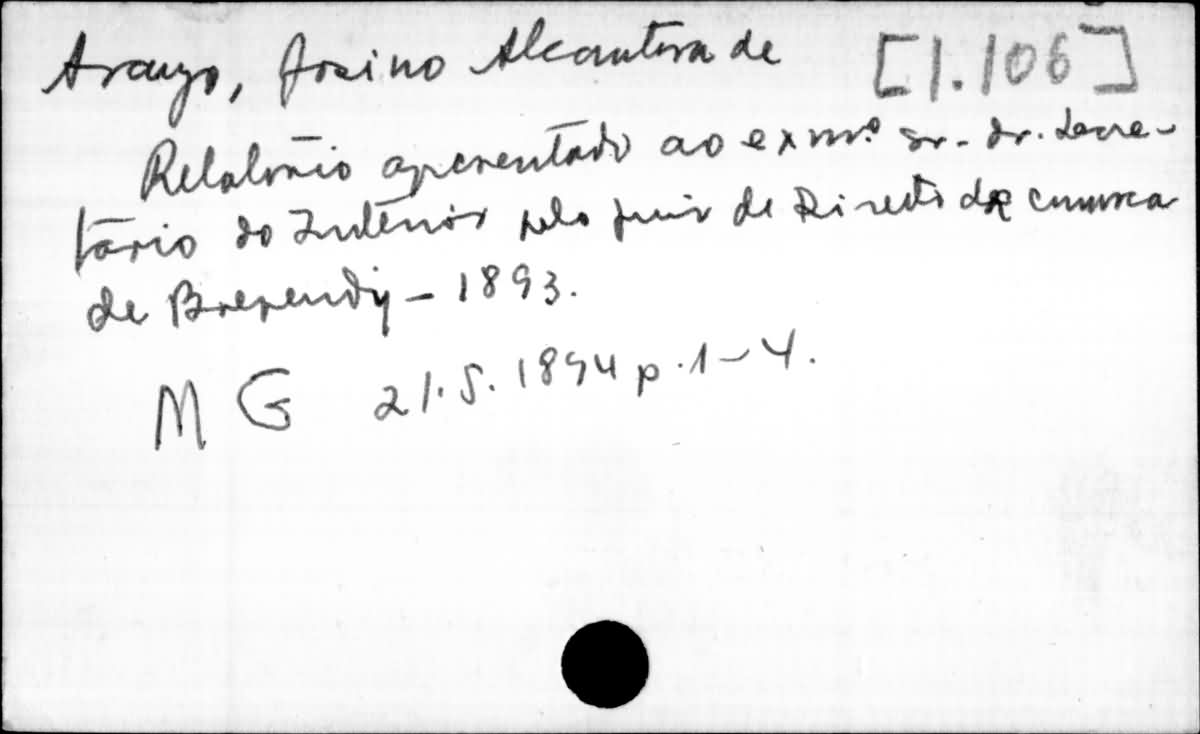 Araujo, Josino Alcantara de [1.106]
Relatório apresentado ao exmº sr. dr. Secre-
tário do Interior pelo juiz de Direito da comarca
de Baependy - 1893.
M G 21.5.1894 p.1-4.